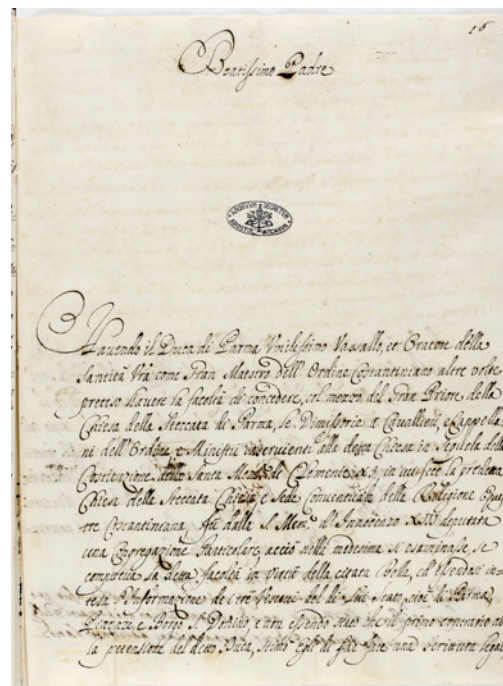 16
Beatissimo Padre
ARCHIVUM SECRETUM APOSTOL. VATICANUM
Havendo il Duca di Parma Umilissimo Vassallo, et Oratore della
Santità Vrã come Gran Maestro dell'Ordine Costantiniano altre volte
preteso d'havere la facoltà di concedere, col mezzo del Gran Priore della
Chiesa della Steccata di Parma, le Dimissorie a Cavallieri, e Cappella
ni dell'Ordine, e Ministri inservienti alla detta Chiesa in sequela della
Costituzione della Santa Mem. di Clemente XI, in cui fece la predetta
Chiesa della Steccata Chiesa e Sede Conventuale della Religione Eques
tre Costantiniana, fù dalla S. Mem. d'Innocenzo XIII deputata
una Congregazione Particolare, acciò nella medesima si esaminasse, se
competeva la detta facoltà in virtù della citata Bolla, ed essendosi in-
tesa l'Informazione de i tre Vescovi del di lui Stato, cioè di Parma,
Piacenza e Borgo S. Donino, e non essendo stato che il primo contrario al
la pretensione del detto Duca, stimò egli di far fare una scrittura legal